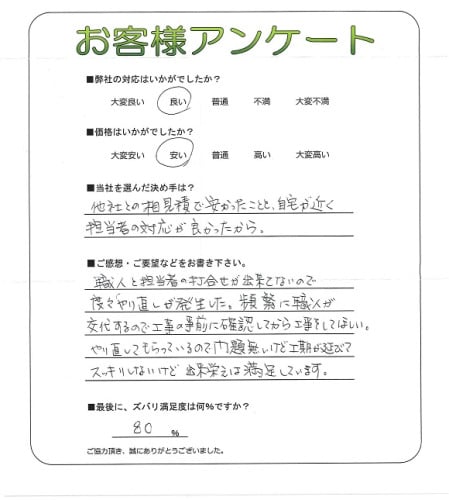 お客様アンケート
■弊社の対応はいかがでしたか?
大変良い 良い 普通 不満 大変不満
■価格はいかがでしたか?
大変安い 安い 普通 高い 大変高い
■当社を選んだ決め手は?
他社との相見積で安かったことと、自宅が近く
担当者の対応が良かったから。
■ご感想・ご要望などをお書き下さい。
職人と担当者の打合せが出来てないので
度々やり直しが発生した。頻繁に職人が
交代するので工事の事前に確認してから工事をしてほしい。
やり直してもらっているので問題無いけど工期が延びて
スッキリしないけど出来栄えは満足しています。
■最後に、ズバリ満足度は何%ですか?
80 %
ご協力頂き、誠にありがとうございました。